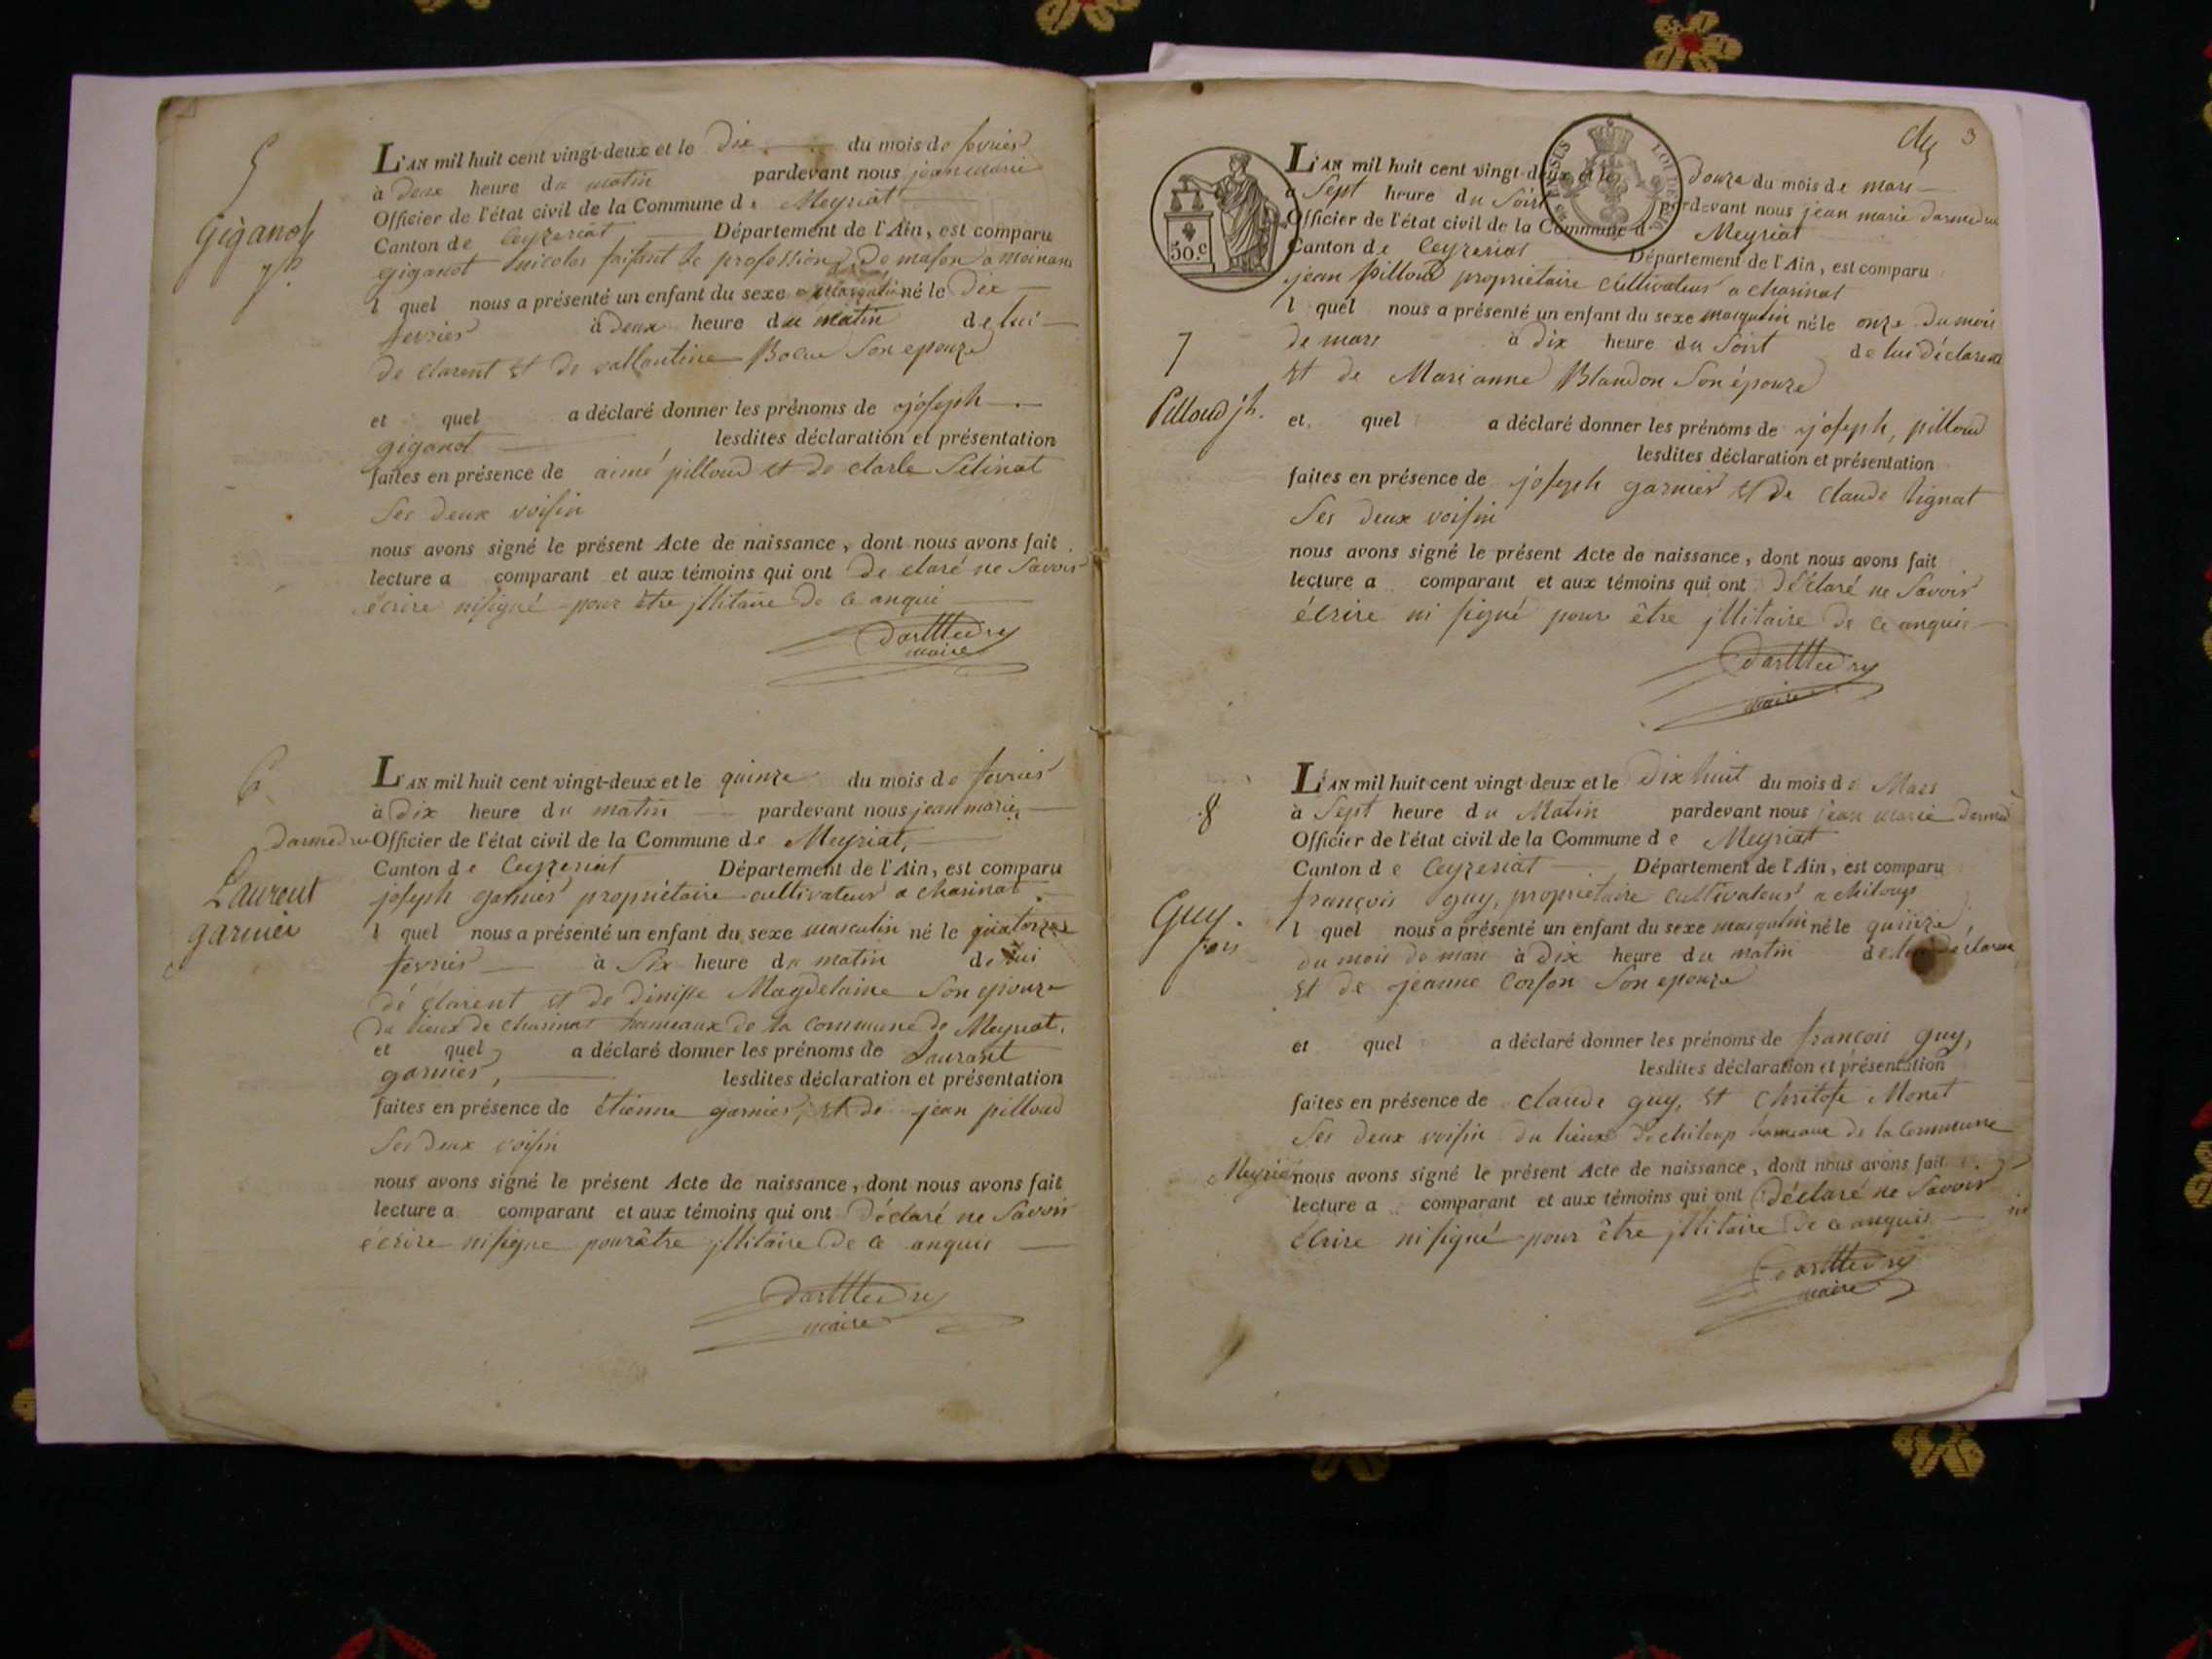 5
Giganot
jh.
L'AN mil huit cent vingt-deux et le dix du mois de fevrier
à deux heure du matin pardevant nous jean marie
Officier de l'état civil de la Commune de Meyriat
Canton de Ceyzeriat Département de l'Ain, est comparu
giganot nicolas faisant de profession de mason a
l quel nous a présenté un enfant du sexe né le dix
fevrier à deux heure du matin de lui
de clarent et de vallantine son epouze
et quel a déclaré donner les prénoms de joseph
giganot lesdites déclaration et présentation
faites en présence de aimé pilloud et de clarle
Ses deux voisin
nous avons signé le présent Acte de naissance, dont nous avons fait
lecture a comparant et aux témoins qui ont de claré ne Savoir
écrire nisigné pour être jllitaire de ce anqui
maire
6
Laurent
garnier
L'AN mil huit cent vingt-deux et le quinze du mois de fevrier
à dix heure du matin pardevant nous jean marie
darmedru Officier de l'état civil de la Commune de Meyriat,
Canton de Ceyzeriat Département de l'Ain, est comparu
joseph garnier propriétaire cultivateur a charinat
l quel nous a présenté un enfant du sexe masculin né le quatorze
fevrier à Six heure du matin de lui
dé clarent et de dinisse Magdelaine Son epouze
du lieux de charinat hameaux de la commune de Meyriat.
et quel a déclaré donner les prénoms de Laurant
garnier, lesdites déclaration et présentation
faites en présence de étienne garnier, et de jean pilloud
Ses deux voisin
nous avons signé le présent Acte de naissance, dont nous avons fait
lecture a comparant et aux témoins qui ont déclaré ne Savoir
écrire nisigné pour être jllitaire de ce anquis
maire
3
50.c
L'AN mil huit cent vingt-deux et le douze du mois de mars
à Sept heure du Soire pardevant nous jean marie darmedru
Officier de l'état civil de la Commune d Meyriat
Canton de Ceyzeriat Département de l'Ain, est comparu
jean pilloud propriétaire cultivateur a charinat
l quel nous a présenté un enfant du sexe masqulin né le onze du mois
7
de mars à dix heure du Soirt de lui déclarent
et de Marianne Blandon Son épouze
Pilloud jh.
et quel a déclaré donner les prénoms de joseph, pilloud
lesdites déclaration et présentation
faites en présence de joseph garnier et de claude
Ses deux voisin
nous avons signé le présent Acte de naissance, dont nous avons fait
lecture a comparant et aux témoins qui ont déclaré ne Savoir
écrire ni signé pour être jllitaire de ce anquis
maire
8
Guy.
L'AN mil huit cent vingt-deux et le dix huit du mois de Mars
à Sept heure du Matin pardevant nous jean marie
Officier de l'état civil de la Commune de Meyriat
Canton de Ceyzeriat Département de l'Ain, est comparu
françois guy, propriétaire cultivateur a chiloup
l quel nous a présenté un enfant du sexe masqulin né le quinze
du mois de mars à dix heure du matin de lui déclaren
et de jeanne Corson Son epouze
et quel a déclaré donner les prénoms de françois guy,
lesdites déclaration et présentation
faites en présence de claude guy, et Christofe Monet
Ses deux voisin du lieux de chiloup hameaux de la commune
Meyria nous avons signé le présent Acte de naissance, dont nous avons fait
lecture a comparant et aux témoins qui ont déclaré ne Savoir
écrire ni signé pour être jllitaire de ce anquis
maire